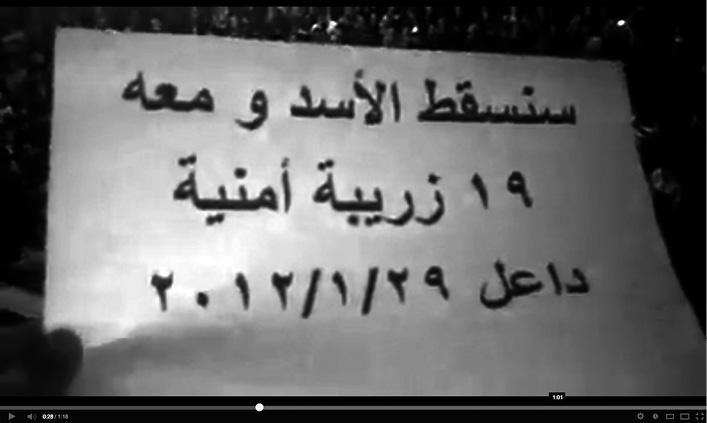 سنسقط الأسد و معه
١٩ زريبة أمنية
داعل ٢٠١٢/١/٢٩
1:01
0:28 / 1:18